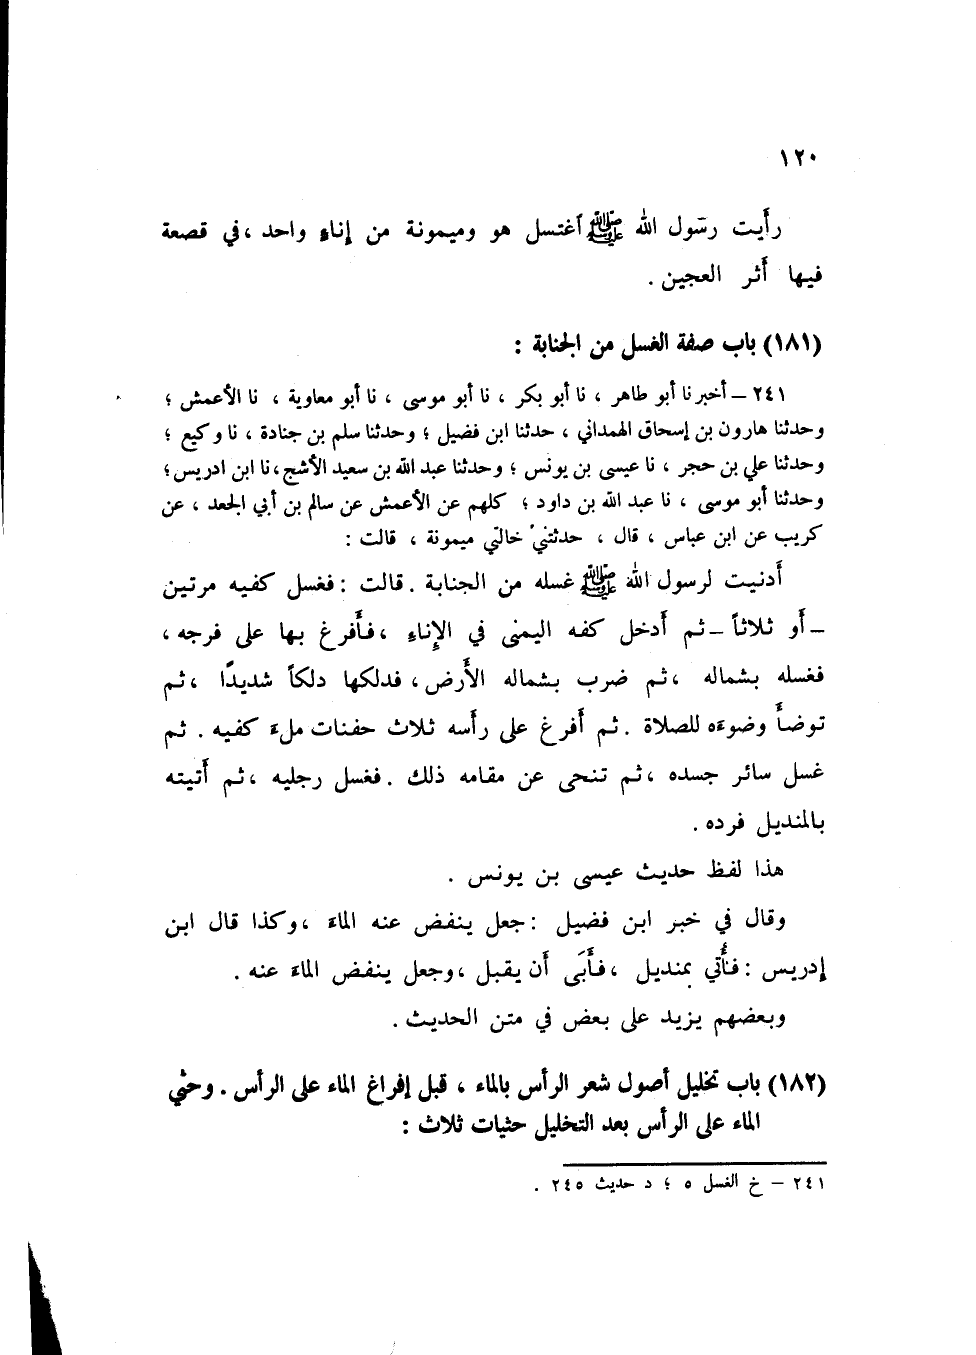 ١٢٠
رأيت رسول الله ﷺ اغتسل هو وميمونة من إناءٍ واحد ، في قصعة
فيها أثر العجين .
(١٨١) باب صفة الغسل من الجنابة :
٢٤١ – أخبرنا أبو طاهر ، نا أبو بكر ، نا أبو موسى ، نا أبو معاوية ، نا الأعمش ؛
وحدثنا هارون بن إسحاق الهمداني ، حدثنا ابن فضيل ؛ وحدثنا سلم بن جنادة ، نا وكيع ؛
وحدثنا علي بن حجر ، نا عيسى بن يونس ؛ وحدثنا عبد الله بن سعيد الأشج ، نا ابن ادريس ؛
وحدثنا أبو موسى ، نا عبد الله بن داود ؛ كلهم عن الأعمش عن سالم بن أبي الجعد ، عن
كريب عن ابن عباس ، قال ، حدثتني خالتي ميمونة ، قالت :
أدنيت لرسول الله ﷺ غسله من الجنابة . قالت : فغسل كفيه مرتين
– أو ثلاثاً – ثم أدخل كفه اليمنى في الإناءِ ، فأفرغ بها على فرجه ،
فغسله بشماله ، ثم ضرب بشماله الأرض ، فدلكها دلكاً شديدًا ، ثم
توضأ وضوءه للصلاة . ثم أفرغ على رأسه ثلاث حفنات ملءَ كفيه . ثم
غسل سائر جسده ، ثم تنحى عن مقامه ذلك . فغسل رجليه ، ثم أتيته
بالمنديل فرده .
هذا لفظ حديث عيسى بن يونس .
وقال في خبر ابن فضيل : جعل ينفض عنه الماءَ ، وكذا قال ابن
إدريس : فأُتي بمنديل ، فأَبَى أن يقبل ، وجعل ينفض الماءَ عنه .
وبعضهم يزيد على بعض في متن الحديث .
(١٨٢) باب تخليل أصول شعر الرأس بالماء ، قبل إفراغ الماء على الرأس . وحثي
الماء على الرأس بعد التخليل حثيات ثلاث :
٢٤١ – خ الغسل ٥ ؛ د حديث ٢٤٥ .